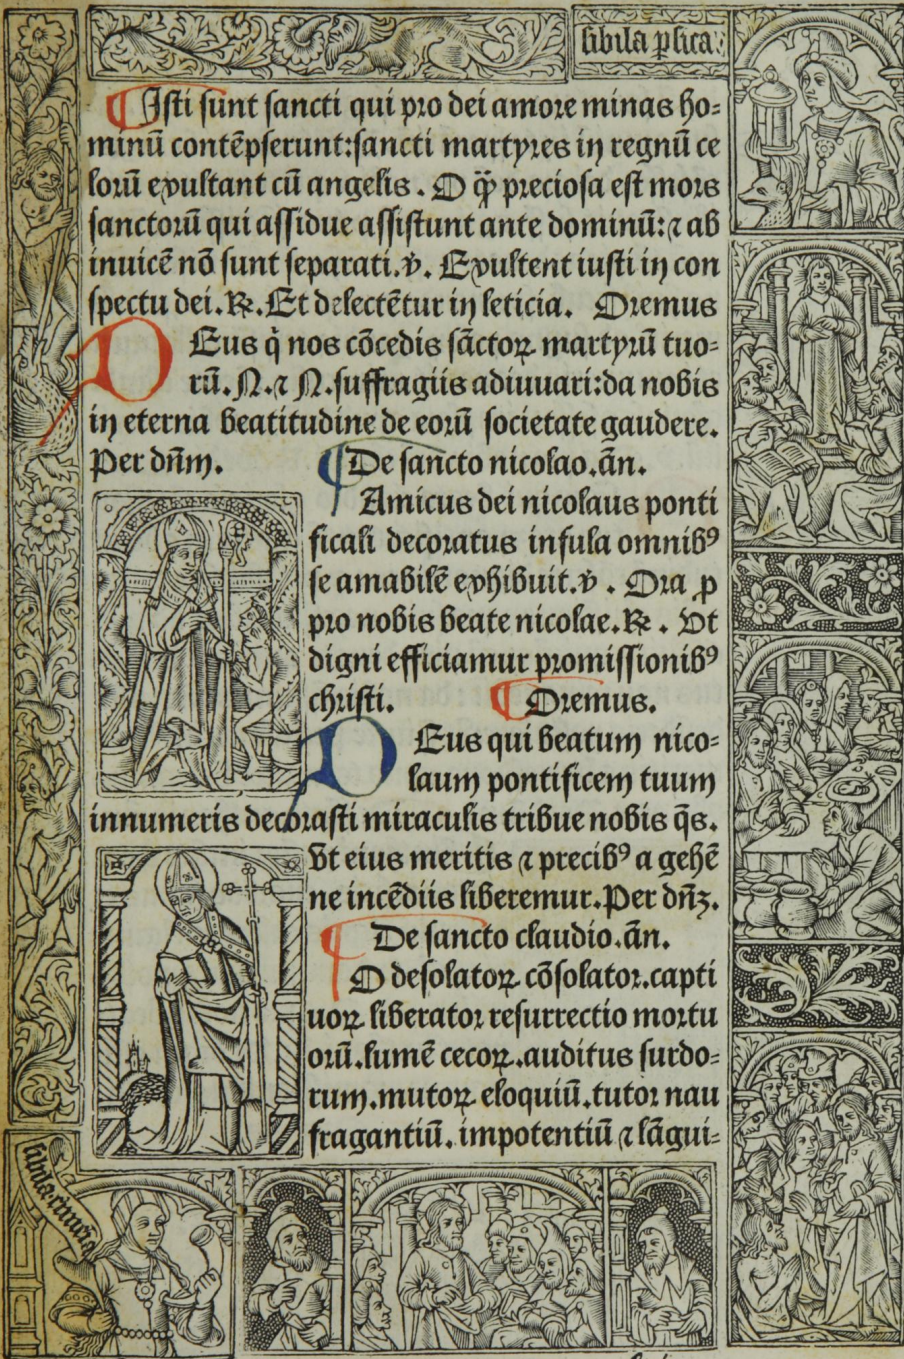 sibila p̲sica
¶ Isti sunt sancti qui pro dei amore minas ho-
minū contēpserunt: sancti martyres in regnū ce
lorū exultant cū angelis. O q̄ꝫ preciosa est mors
sanctorū qui assidue assistunt ante dominū: ⁊ ab
inuicē nō sunt separati. ℣. Exultent iusti in con
spectu dei. ℟. Et delectētur in leticia. Oremus
DEus q̇ nos cōcedis sāctoꝝ martyrū tuo-
rū. N. ⁊ N. suffragiis adiuuari: da nobis
in eterna beatitudine de eorū societate gaudere.
Per dn̄m. ¶ De sancto nicolao. an̄.
Amicus dei nicolaus ponti
ficali decoratus infula omnibꝰ
se amabilē exhibuit. ℣. Ora ꝓ
pro nobis beate nicolae. ℟. Ut
digni efficiamur promissionibꝰ
christi. ¶ Oremus.
DEus qui beatum nico-
laum pontificem tuum
innumeris decorasti miraculis tribue nobis q̄s.
Ut eius meritis ⁊ precibꝰ a gehē
ne incēdiis liberemur. Per dn̄ꝫ.
¶ De sancto claudio. ān.
O desolatoꝝ cōsolator. capti
uoꝝ liberator resurrectio mortu
orū. lumē cecoꝝ. auditus surdo-
rum. mutoꝝ eloquiū. tutor nau
fragantiū. impotentiū ⁊ lāgui-